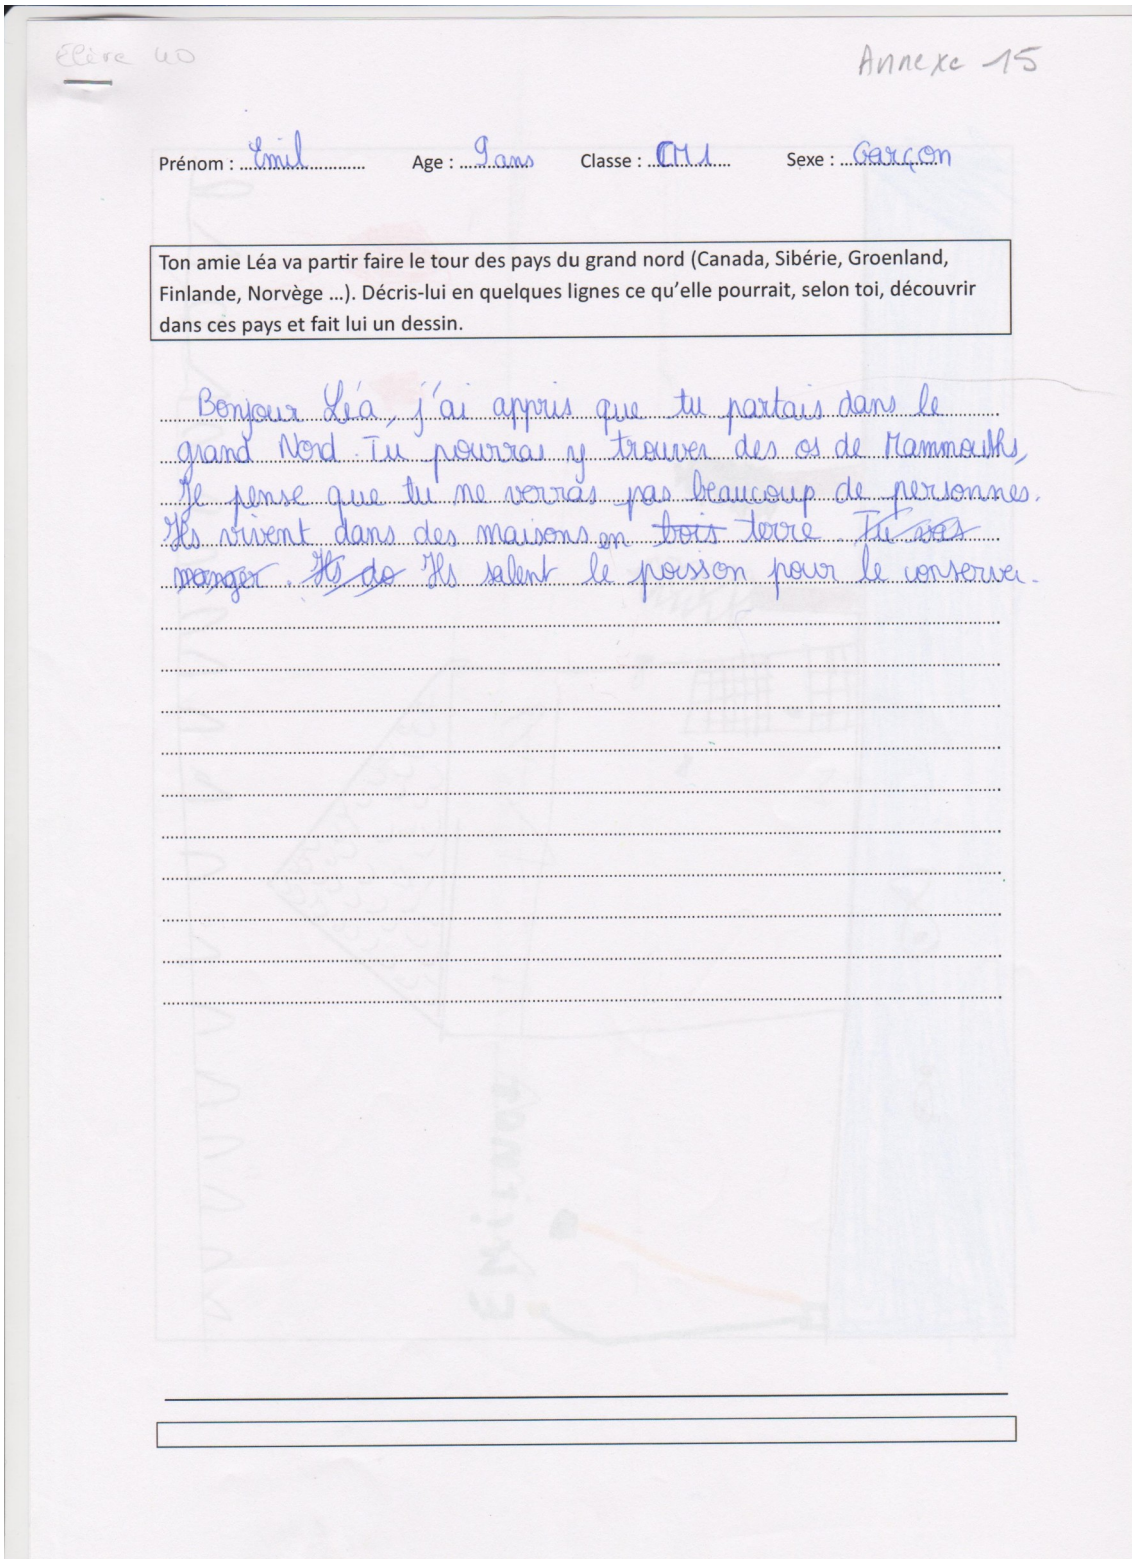 Élève 40
Annexe 15
Prénom : Emil Age : 9 ans Classe : CM1 Sexe : Garçon
Ton amie Léa va partir faire le tour des pays du grand nord (Canada, Sibérie, Groenland,
Finlande, Norvège ...). Décris-lui en quelques lignes ce qu'elle pourrait, selon toi, découvrir
dans ces pays et fait lui un dessin.
Bonjour Léa, j'ai appris que tu partais dans le
grand Nord. Tu pourras y trouver des os de Mammouths,
Je pense que tu ne verras pas beaucoup de personnes.
Ils vivent dans des maisons en bois terre. Tu vas
manger. Ils do Ils salent le poisson pour le conserver.